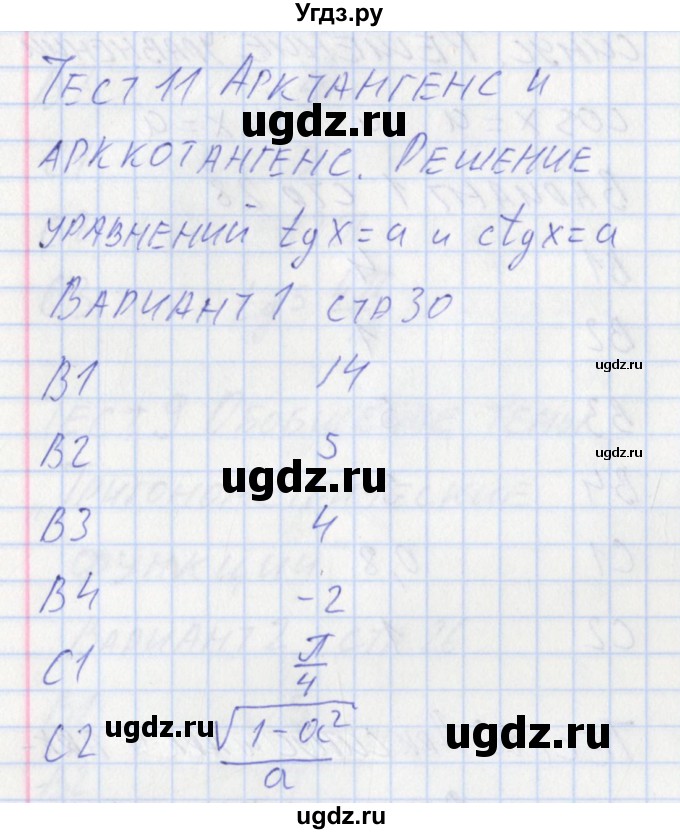 Угдз.ру
Тест 11 Арктангенс и
ugdz.ru
арккотангенс. Решение
уравнений tgx=a и ctgx=a
Вариант 1 стр 30
B1 14
ugdz.ru
B2 5
ugdz.ru
ugdz.ru
B3 4
B4 -2
C1 π/4
C2 √(1-a²)/a
ugdz.ru
ugdz.ru
ugdz.ru